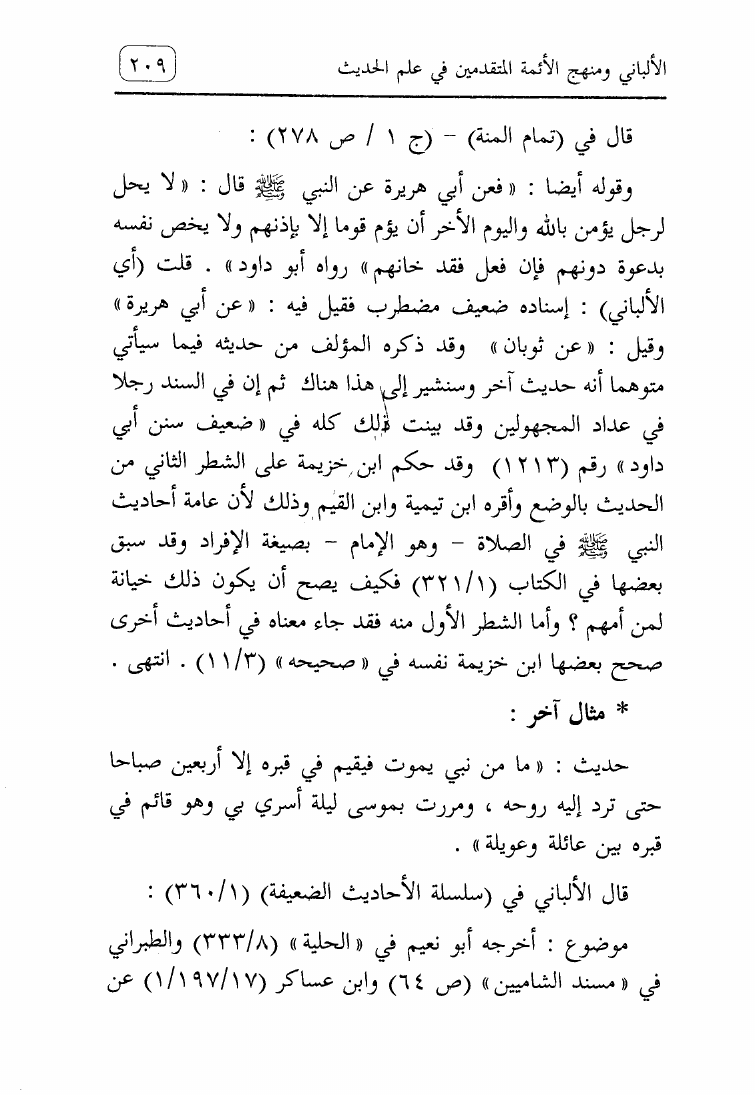 الألباني ومنهج الأئمة المتقدمين في علم الحديث
٢٠٩
قال في (تمام المنة) - (ج ١ / ص ٢٧٨) :
وقوله أيضا : «فعن أبي هريرة عن النبي ﷺ قال : «لا يحل
لرجل يؤمن بالله واليوم الأخر أن يؤم قوما إلا بإذنهم ولا يخص نفسه
بدعوة دونهم فإن فعل فقد خانهم» رواه أبو داود» . قلت (أي
الألباني) : إسناده ضعيف مضطرب فقيل فيه : «عن أبي هريرة»
وقيل : «عن ثوبان» وقد ذكره المؤلف من حديثه فيما سيأتي
متوهما أنه حديث آخر وسنشير إلى هذا هناك ثم إن في السند رجلا
في عداد المجهولين وقد بينت ذلك كله في «ضعيف سنن أبي
داود» رقم (١٢١٣) وقد حكم ابن خزيمة على الشطر الثاني من
الحديث بالوضع وأقره ابن تيمية وابن القيم وذلك لأن عامة أحاديث
النبي ﷺ في الصلاة - وهو الإمام - بصيغة الإفراد وقد سبق
بعضها في الكتاب (٣٢١/١) فكيف يصح أن يكون ذلك خيانة
لمن أمهم ؟ وأما الشطر الأول منه فقد جاء معناه في أحاديث أخرى
صحح بعضها ابن خزيمة نفسه في «صحيحه» (١١/٣) . انتهى .
* مثال آخر :
حديث : «ما من نبي يموت فيقيم في قبره إلا أربعين صباحا
حتى ترد إليه روحه ، ومررت بموسى ليلة أسري بي وهو قائم في
قبره بين عائلة وعويلة» .
قال الألباني في (سلسلة الأحاديث الضعيفة) (٣٦٠/١) :
موضوع : أخرجه أبو نعيم في «الحلية» (٣٣٣/٨) والطبراني
في «مسند الشاميين» (ص ٦٤) وابن عساكر (١/١٩٧/١٧) عن